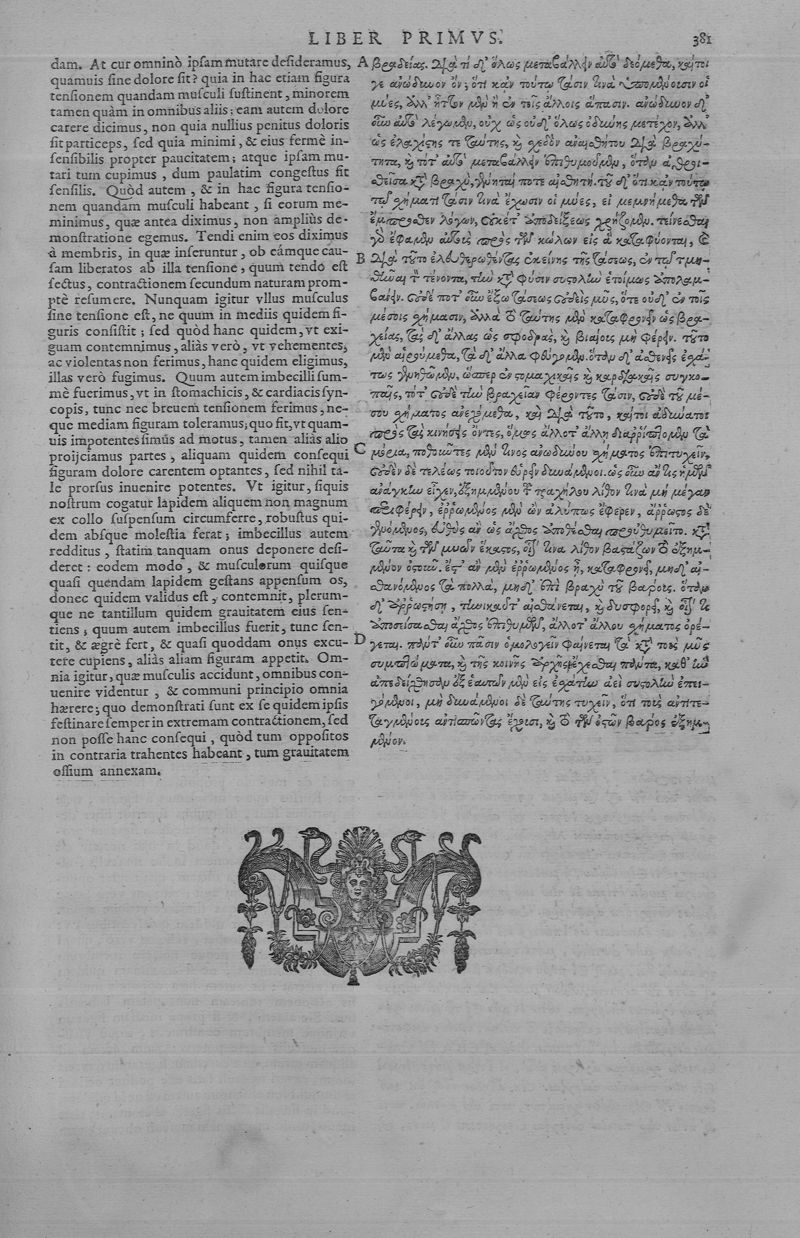 LIBER PRIMVS. 381
dam. At cur omninò ipſam mutare deſideramus,
quamuis ſine dolore ſit? quia in hac etiam figura
tenſionem quandam muſculi ſuſtinent, minorem
tamen quàm in omnibus aliis; eam autem dolore
carere dicimus, non quia nullius penitus doloris
ſit particeps, ſed quia minimi, & eius fermè in-
ſenſibilis propter paucitatem; atque ipſam mu-
tari tum cupimus, dum paulatim congeſtus ſit
ſenſilis. Quòd autem, & in hac figura tenſio-
nem quandam muſculi habeant, ſi eorum me-
minimus, quæ antea diximus, non ampliùs de-
monſtratione egemus. Tendi enim eos diximus
à membris, in quæ inſeruntur, ob eámque cau-
ſam liberatos ab illa tenſione, quum tendo eſt
ſectus, contractionem ſecundum naturam prom-
ptè reſumere. Nunquam igitur vllus muſculus
ſine tenſione eſt, ne quum in mediis quidem fi-
guris conſiſtit; ſed quòd hanc quidem, vt exi-
guam contemnimus, aliàs verò, vt vehementes,
ac violentas non ferimus, hanc quidem eligimus,
illas verò fugimus. Quum autem imbecilli ſum-
mè fuerimus, vt in ſtomachicis, & cardiacis ſyn-
copis, tunc nec breuem tenſionem ferimus, ne-
que mediam figuram toleramus; quo fit, vt quam-
uis impotentes ſimus ad motus, tamen aliàs alio
proijciamus partes, aliquam quidem conſequi
figuram dolore carentem optantes, ſed nihil ta-
le prorſus inuenire potentes. Vt igitur, ſiquis
noſtrum cogatur lapidem aliquem non magnum
ex collo ſuſpenſum circumferre, robuſtus qui-
dem abſque moleſtia ferat; imbecillus autem
redditus, ſtatim tanquam onus deponere deſi-
deret: eodem modo, & muſculorum quiſque
quaſi quendam lapidem geſtans appenſum os,
donec quidem validus eſt, contemnit, plerum-
que ne tantillum quidem grauitatem eius ſen-
tiens; quum autem imbecillus fuerit, tunc ſen-
tit, & ægrè fert, & quaſi quoddam onus excu-
tere cupiens, aliàs aliam figuram appetit. Om-
nia igitur, quæ muſculis accidunt, omnibus con-
uenire videntur, & communi principio omnia
hærere; quo demonſtrati ſunt ex ſe quidem ipſis
feſtinare ſemper in extremam contractionem, ſed
non poſſe hanc conſequi, quòd tum oppoſitos
in contraria trahentes habeant, tum grauitatem
oſſium annexam.
A βραδείας. διὰ τί δ' ὅλως μεταβάλλειν αὐτὸ δεόμεθα, καίτοι
γε ἀνώδυνον ὄν; ὅτι κἀν τούτῳ τάσιν τινὰ ὑπομένουσιν οἱ
μύες, ἀλλ' ἧττον μὲν ἢ ἐν τοῖς ἄλλοις ἅπασιν. ἀνώδυνον δ'
οὖν αὐτὸ λέγομεν, οὐχ ὡς οὐδ' ὅλως ὀδύνης μετέχον, ἀλλ'
ὡς ἐλαχίστης τε ταύτης, καὶ σχεδὸν ἀναισθήτου διὰ βραχύ-
τητα, καὶ τότ' αὐτὸ μεταβάλλειν ἐπιθυμοῦμεν, ὅταν ἀθροι-
σθεῖσα κατὰ βραχὺ, γένηταί ποτε αἰσθητή. τοῦ δ' ὅτι κἀν τούτῳ
τῷ σχήματι τάσιν τινὰ ἔχουσιν οἱ μύες, εἰ μεμνήμεθα τῶν
ἔμπροσθεν λόγων, οὐκέτ' ἀποδείξεως χρῄζομεν. τείνεσθαι
γὰρ ἔφαμεν αὐτοὺς πρὸς τῶν κώλων εἰς ἃ καταφύονται, καὶ
B διὰ τοῦτο ἐλευθερωθέντας ἐκείνης τῆς τάσεως, ἐν τῷ τμη-
θῆναι τὸν τένοντα, τὴν κατὰ φύσιν συστολὴν ἑτοίμως ἀπολαμ-
βάνειν. οὐδέ ποτ' οὖν ἔξω τάσεως οὐδεὶς μῦς, ὅτε οὐδ' ἐν τοῖς
μέσοις σχήμασιν, ἀλλὰ τὸ ταύτης μὲν καταφρονεῖν ὡς βρα-
χείας, τὰς δ' ἄλλας ὡς σφοδρὰς, καὶ βιαίους μὴ φέρειν. τοῦτο
μὲν αἱρούμεθα, τὰ δ' ἄλλα φεύγομεν. ὅταν δ' ἀσθενεῖς ἐσχά-
τως γενηθῶμεν, ὥσπερ ἐν στομαχικαῖς καὶ καρδιακαῖς συγκο-
παῖς, τότ' οὐδὲ τὴν βραχεῖαν φέροντες τάσιν, οὐδὲ τοῦ μέ-
σου σχήματος ἀνεχόμεθα, καὶ διὰ τοῦτο, καίτοι ἀδύνατοι
πρὸς τὰς κινήσεις ὄντες, ὅμως ἄλλοτ' ἄλλῃ διαρριπτοῦμεν τὰ
C μόρια, ποθοῦντες μέν τινος ἀνωδύνου σχήματος ἐπιτυχεῖν,
οὐδὲν δὲ τελέως τοιοῦτον εὑρεῖν δυνάμενοι. ὡς οὖν ἄν τις ἡμῶν
ἀνάγκην εἶχεν, ἐξημμένου τοῦ τραχήλου λίθον τινὰ μὴ μέγαν
περιφέρειν, ἐρρωμένος μὲν ὢν ἀλύπως ἔφερεν, ἄρρωστος δὲ
γενόμενος, εὐθὺς ἂν ὡς ἄχθος ἀποθέσθαι προὐθυμεῖτο. κατὰ
ταῦτα καὶ τῶν μυῶν ἕκαστος, οἷόν τινα λίθον βαστάζων τὸ ἐξημ-
μένον ὀστοῦν. ἔστ' ἂν μὲν ἐρρωμένος ᾖ, καταφρονεῖ, μηδ' αἰ-
σθανόμενος τὰ πολλὰ, μηδ' ἐπὶ βραχὺ τοῦ βάρους. ὅταν
δ' ἀρρωστήσῃ, τηνικαῦτ' αἰσθάνεται, καὶ δυσφορεῖ, καὶ οἷόν τι
ἀποσείσασθαι ἄχθος ἐπιθυμῶν, ἄλλοτ' ἄλλου σχήματος ὀρέ-
D γεται. πάντ' οὖν πᾶσιν ὁμολογεῖν φαίνεται τὰ κατὰ τοὺς μῦς
συμπτώματα, καὶ τῆς κοινῆς ἀρχῆς ἔχεσθαι πάντα, καθ' ἣν
ἀπεδείχθησαν ἐξ ἑαυτῶν μὲν εἰς ἐσχάτην ἀεὶ συστολὴν ἐπει-
γόμενοι, μὴ δυνάμενοι δὲ ταύτης τυχεῖν, ὅτι τοὺς ἀντιτε-
ταγμένους ἀντισπῶντας ἔχουσι, καὶ τὸ τῶν ὀστῶν βάρος ἐξημ-
μένον.